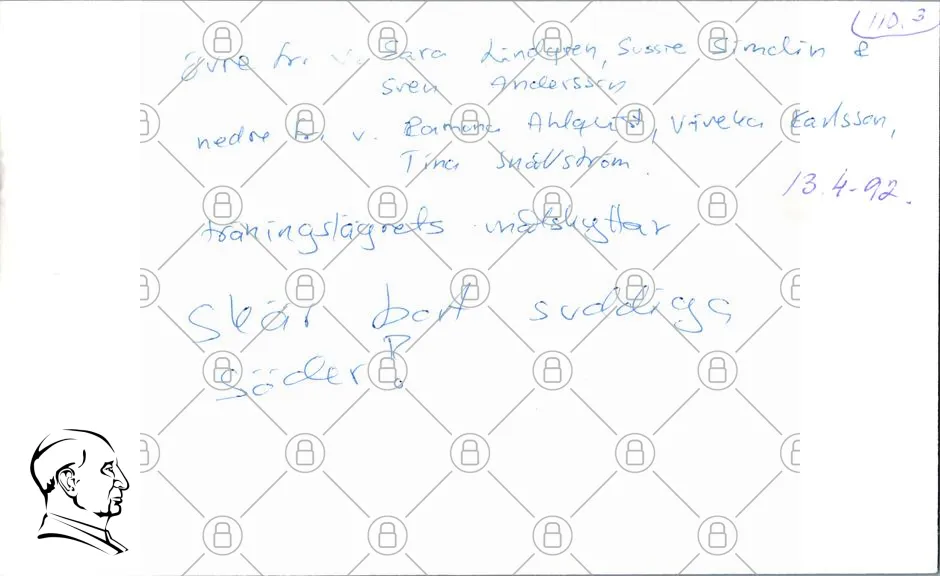 110.3
övre fr. v. Sara Lindgren, Sussie Simolin &
Sven Andersson
nedre fr. v. Ramona Ahlquist, Viveka Karlsson,
Tina
13.4-92.
träningslägrets målskyttar
Skär bort suddiga
Söder!